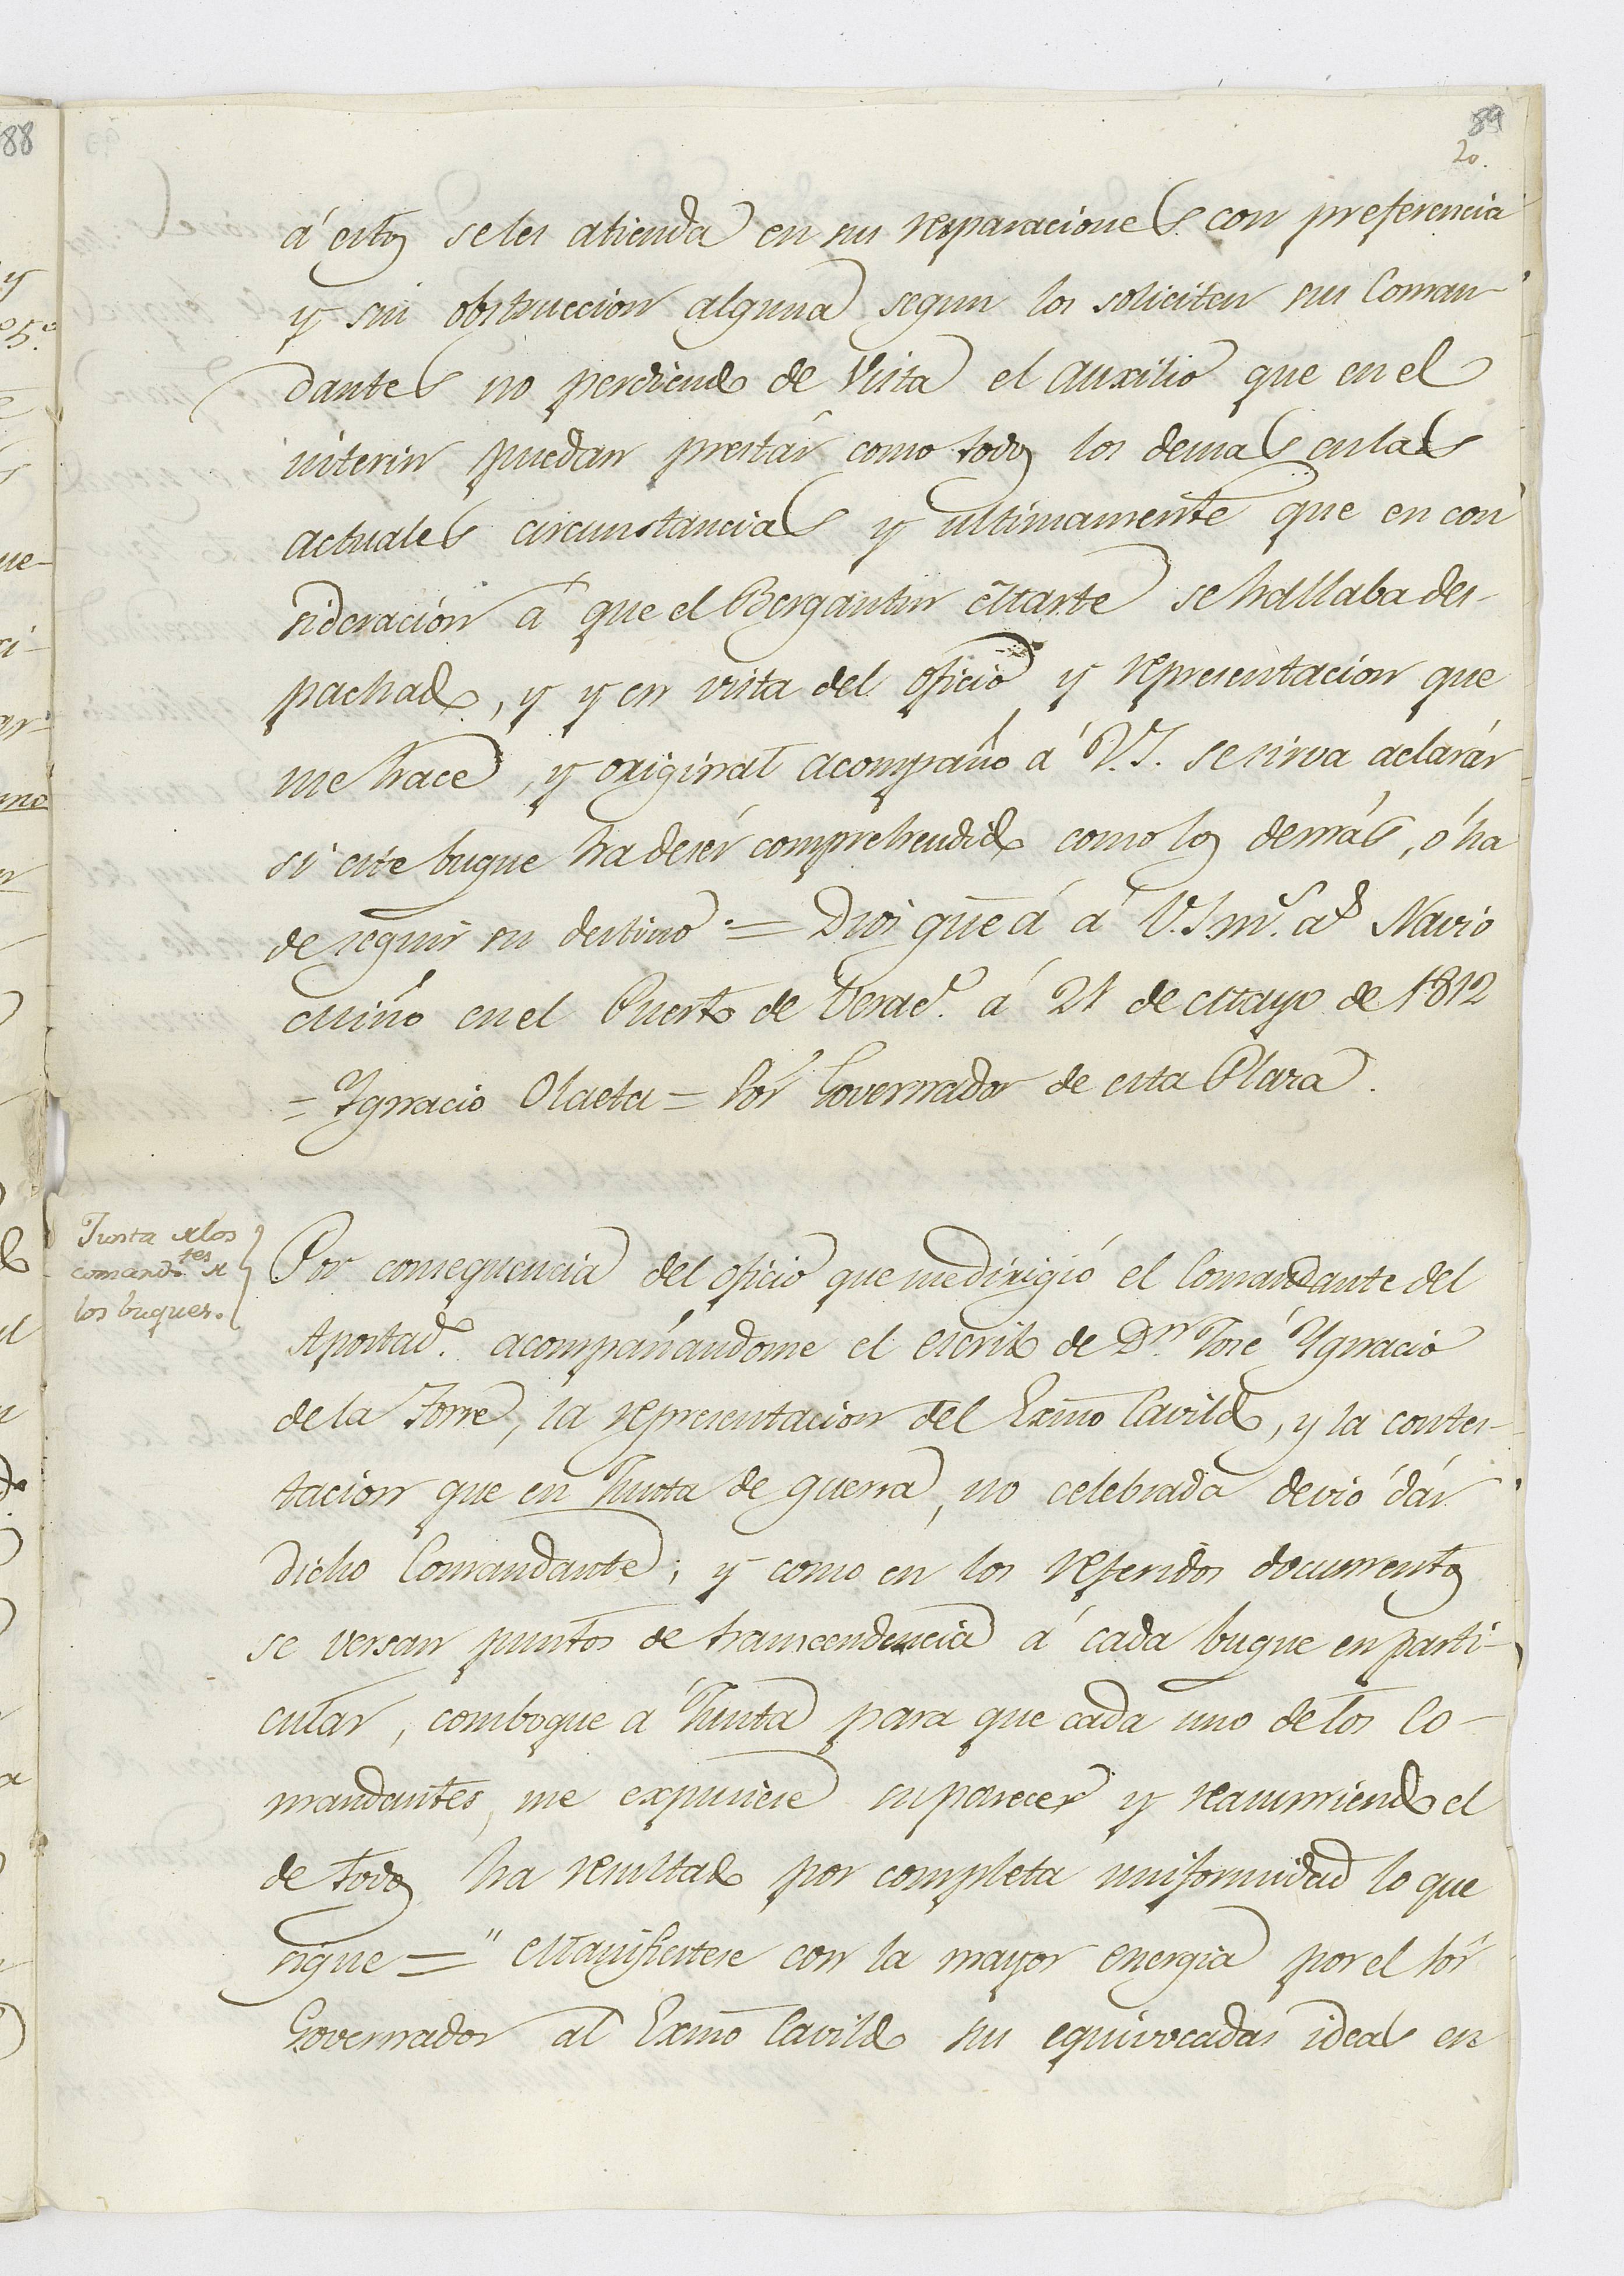 89
20.
á estos se les atienda en sus resparaciones con preferencia
y sin obstruccion alguna segun los soliciten sus Coman-
dantes no perdiendo de vista el auxilio que en el
interin puedan prestár como todos los demas en las
actuales circunstancias y ultimamente que en con
sideracion á que el Bergantin Marte se hallaba des-
pachado, y y en vista del oficio y representacion que
me hace, y original acompaño á V.S. se sirva aclarár
si este buque ha de sér comprehendido como los demás, ó ha
de seguir su destino = Dios güe á á V.S. m.s a.s Navio
Miño en el Puerto de Verac.z á 21 de Mayo de 1812
= Ygnacio Olaeta = Sor Governador de esta Plaza.
Junta de los
comand.tes de
los buques.
Por consequencia del oficio que me dirigió el Comandante del
Apostad.o acompañandome el escrito de D.n José Ygnacio
de la Torre, la representacion del Exmo Cavildo, y la contes-
tacion que en Junta de guerra, no celebrada devió dár
dicho Comandante; y como en los referidos documentos
se versan puntos de transcendencia á cada buque en parti-
cular, comboque á Junta para que cada uno de los Co-
mandantes, me expusiese su parecer y reasumiendo el
de todos ha resultado por completa uniformidad lo que
sigue = " Manifiestese con la mayor energia por el Sor
Governador al Exmo Cavildo sus equivocadas ideas en
88